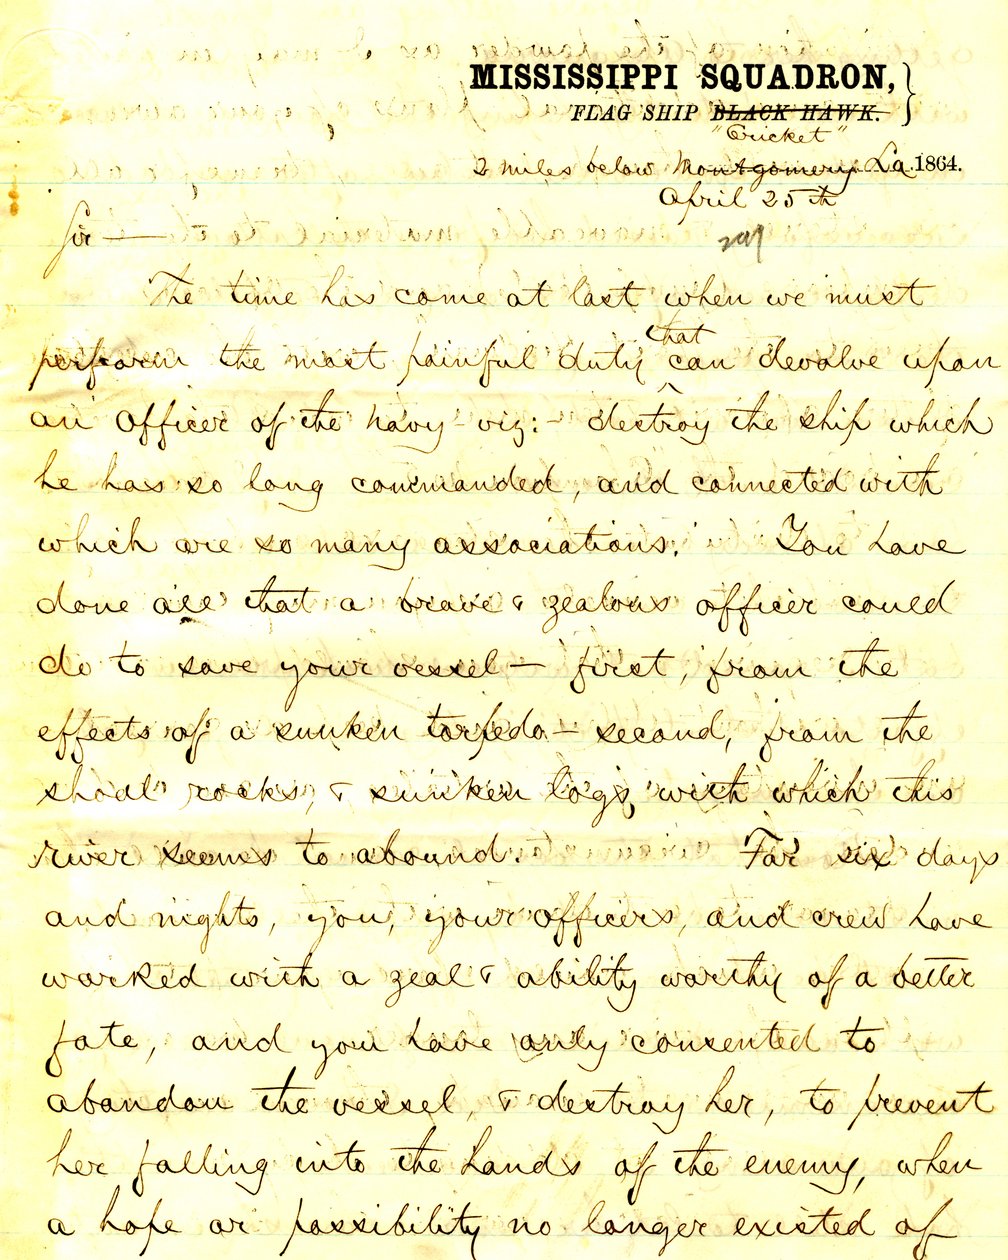 MISSISSIPPI SQUADRON,
FLAG SHIP BLACK HAWK.
"Cricket"
2 miles below Montgomery La. 1864.
April 25th
Sir —
The time has come at last when we must
that
perform the most painful duty can devolve upon
an officer of the navy - viz: - destroy the ship which
he has so long commanded, and connected with
which are so many associations. You have
done all that a brave & zealous officer could
do to save your vessel — first, from the
effects of a sunken torpedo — second, from the
shoal rocks, & sunken logs, with which this
river seems to abound. For six days
and nights, you, your officers, and crew have
worked with a zeal & ability worthy of a better
fate, and you have only consented to
abandon the vessel, & destroy her, to prevent
her falling into the hands of the enemy, when
a hope or possibility no longer existed of